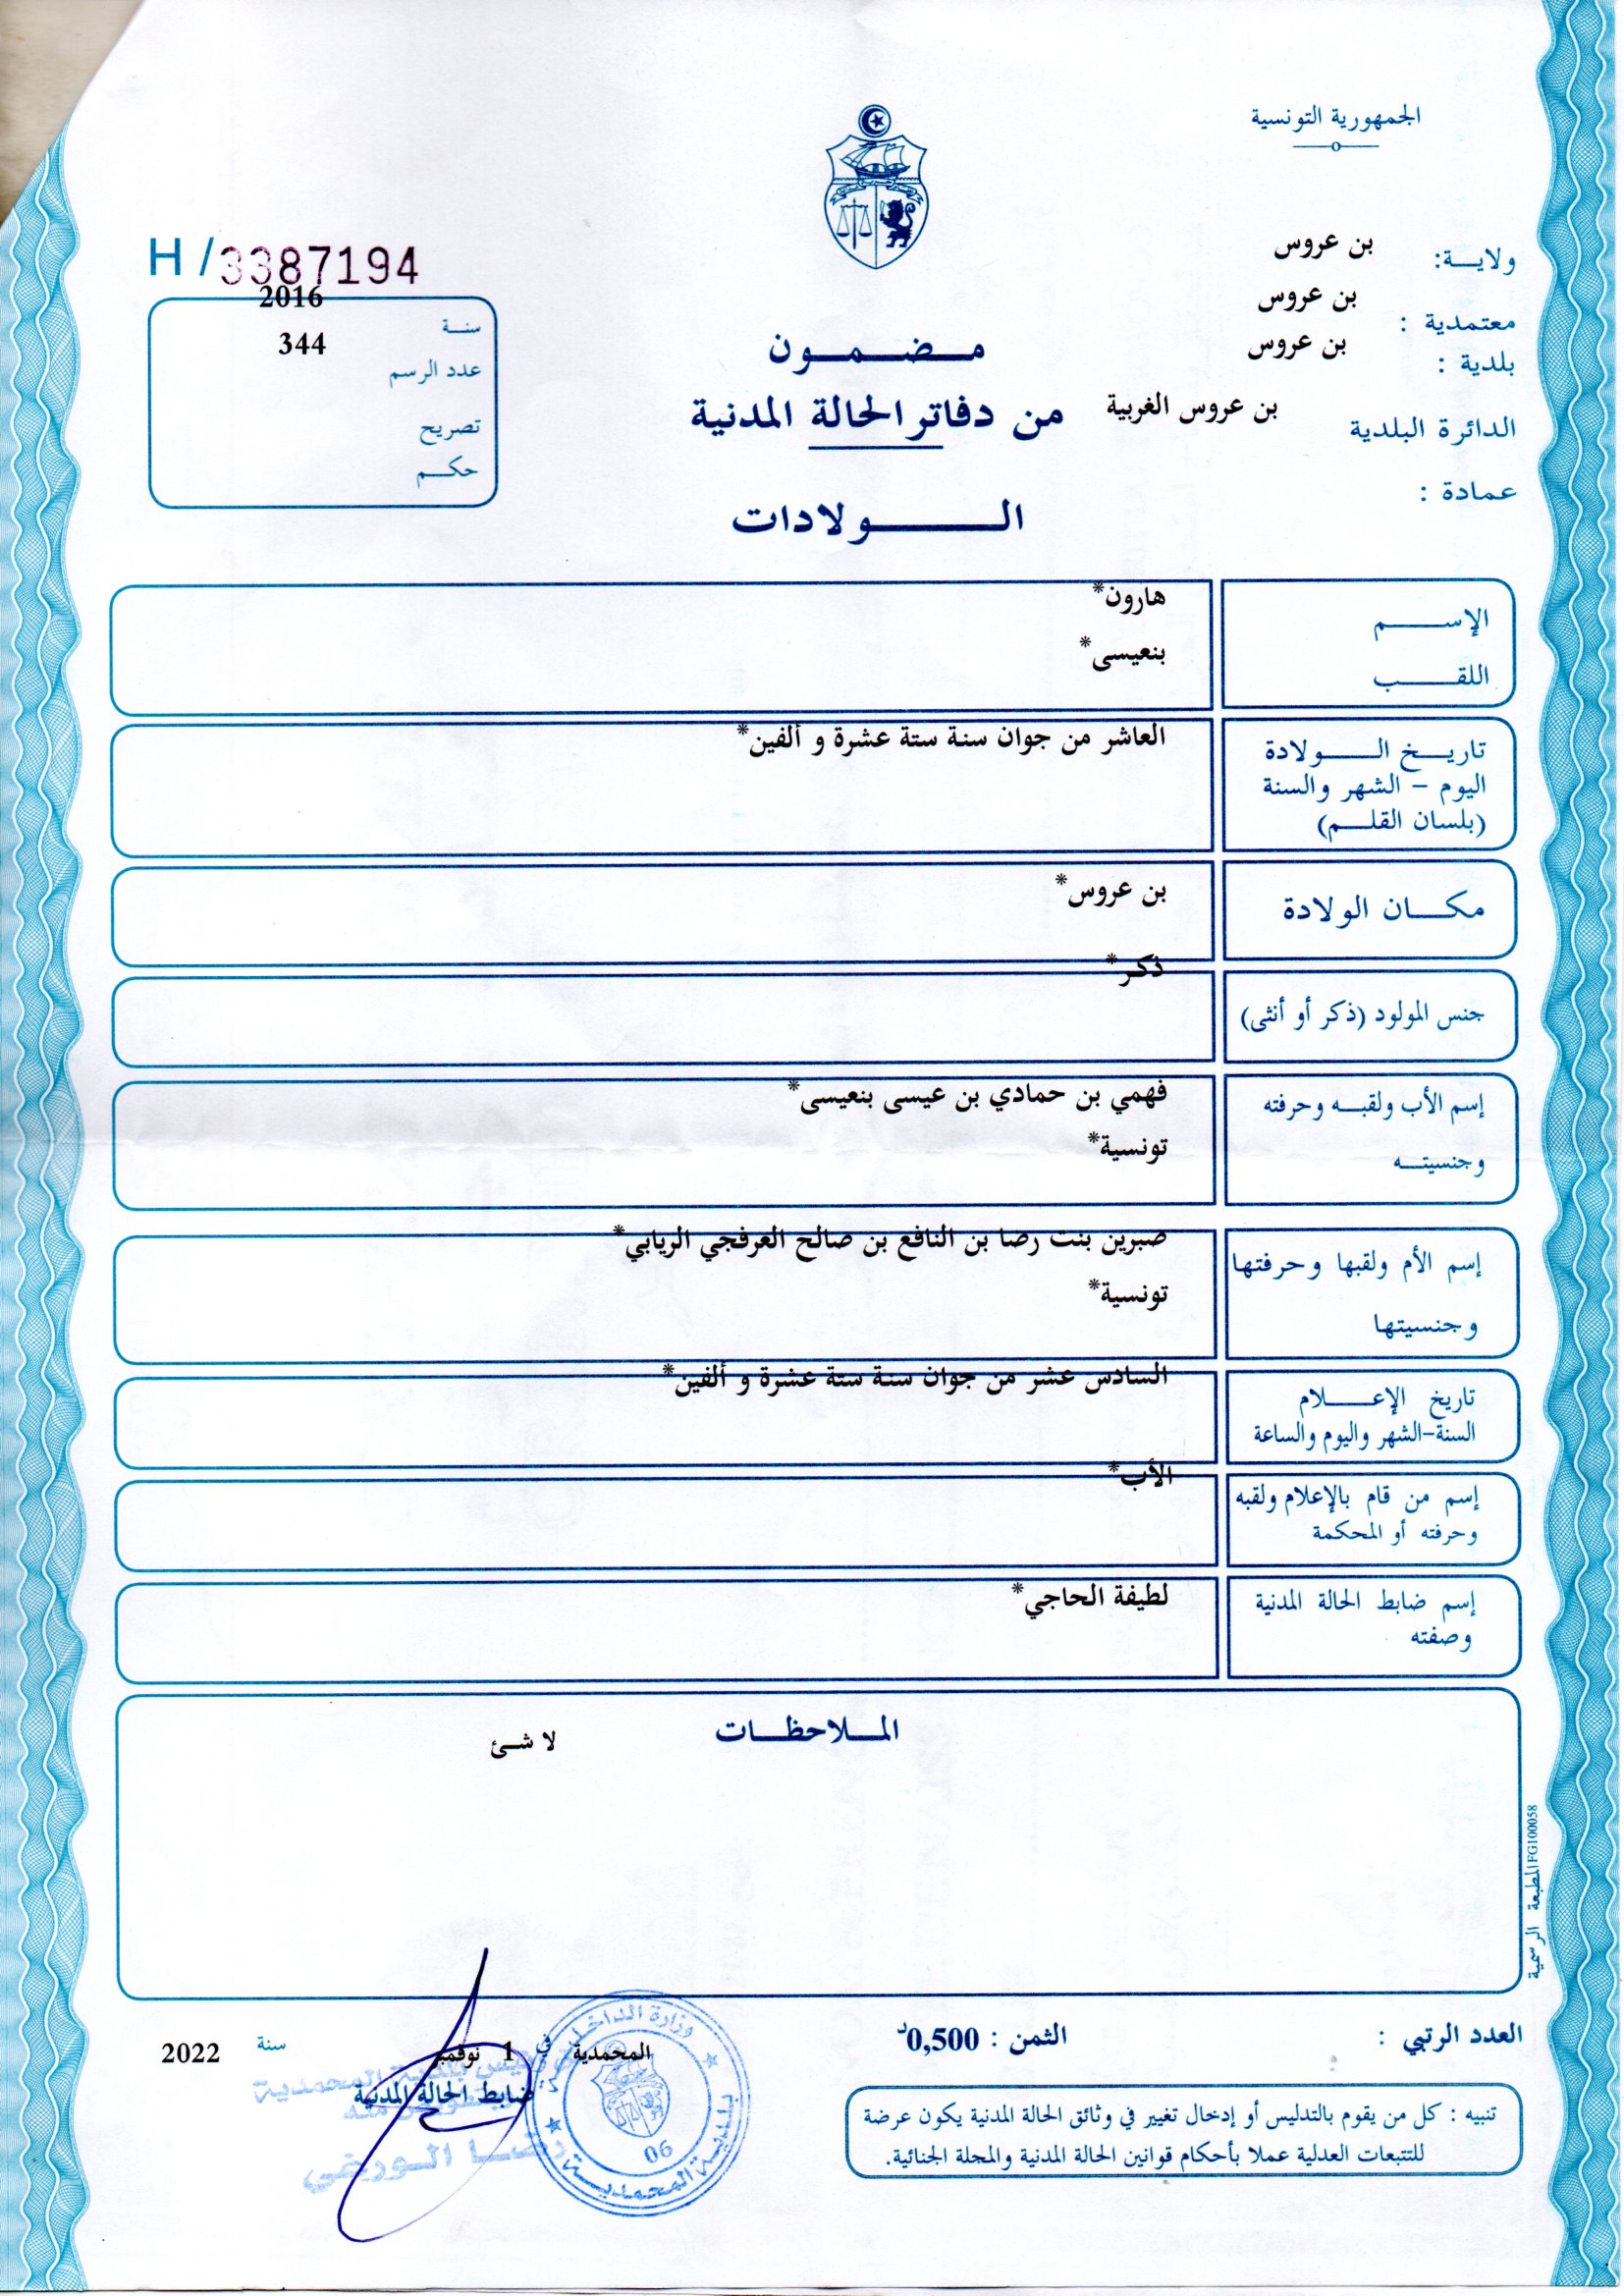 الجمهورية التونسية
ولاية: بن عروس
معتمدية : بن عروس
بلدية : بن عروس
الدائرة البلدية بن عروس الغربية
عمادة :
مضمون
من دفاتر الحالة المدنية
الولادات
H / 3387194
سنة 2016
عدد الرسم 344
تصريح
حكم
الإسم هارون*
اللقب بنعيسى*
تاريخ الولادة
اليوم - الشهر والسنة
(بلسان القلم)
العاشر من جوان سنة ستة عشرة و ألفين*
مكان الولادة بن عروس*
جنس المولود (ذكر أو أنثى) ذكر*
إسم الأب ولقبه وحرفته
وجنسيته
فهمي بن حمادي بن عيسى بنعيسى*
تونسية*
إسم الأم ولقبها وحرفتها
وجنسيتها
صبرين بنت رضا بن النافع بن صالح العرفجي الريابي*
تونسية*
تاريخ الإعلام
السنة-الشهر واليوم والساعة
السادس عشر من جوان سنة ستة عشرة و ألفين*
إسم من قام بالإعلام ولقبه
وحرفته أو المحكمة
الأب*
إسم ضابط الحالة المدنية
وصفته
لطيفة الحاجي*
الملاحظات
لا شئ
المطبعة الرسمية FG100058
العدد الرتبي :
الثمن : 0,500د
المحمدية في 1 نوفمبر سنة 2022
ضابط الحالة المدنية
وزارة الداخلية
بلدية المحمدية
06
تنبيه : كل من يقوم بالتدليس أو إدخال تغيير في وثائق الحالة المدنية يكون عرضة
للتتبعات العدلية عملا بأحكام قوانين الحالة المدنية والمجلة الجنائية.